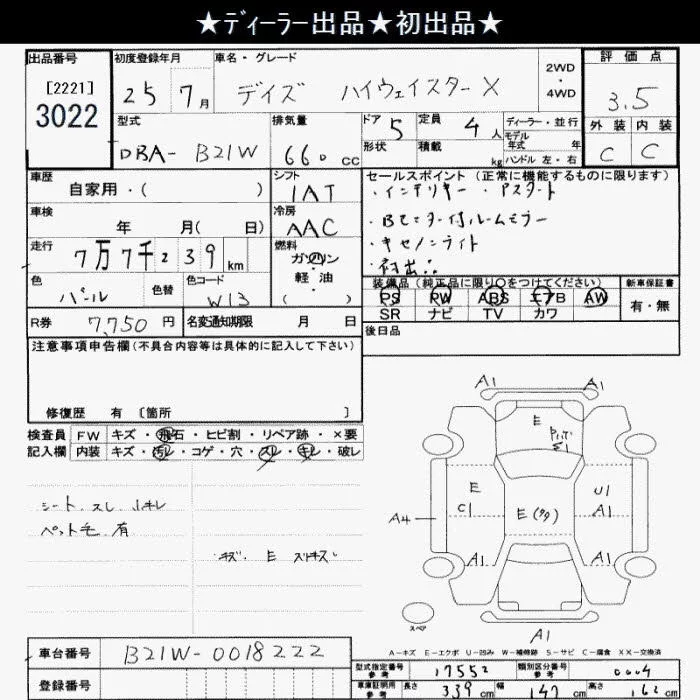 ★ディーラー出品★初出品★
出品番号 初度登録年月 車名・グレード 評価点
[2221] 3022 25 7月 デイズ ハイウェイスターX 2WD・4WD 3.5
型式 排気量 ドア 5 定員 4人 ディーラー・並行 外装 内装
DBA- B21W 660 CC 形状 積載 kg モデル年式 年 C C
ハンドル 左・右
車歴 シフト セールスポイント (正常に機能するものに限ります)
自家用・( ) IAT ・インテリキー ・Pスタート
車検 冷房 ・Bモニター付ルームミラー
年 月( 日) AAC ・キセノンライト
走行 7万7千239km 燃料 ・初出
ガソリン・軽油・( )
色 色替 色コード 装備品 (純正品に限り○をつけてください) 新車保証書
パール W13 PS PW ABS エアB AW 有・無
SR ナビ TV カワ
R券 7,750 円 名変通知期限 月 日 後日品
注意事項申告欄 (不具合内容等は具体的に記入して下さい)
修復歴 有 [箇所 ]
検査員 FW キズ・飛石・ヒビ割・リペア跡・×要
記入欄 内装 キズ・汚れ・コゲ・穴・スレ・キレ・破レ
シート スレ 小キレ
ペット毛 有
キズ E スリキズ
A1 A1
E
E C1 E(タタ) U1 A1
A4
A1 A1
スペア
A1
A－キズ E－エクボ U－凹み W－補修跡 S－サビ C－腐食 XX－交換済
車台番号 B21W-0018222
登録番号
型式指定番号 参考 17552 類別区分番号 参考 0004
車庫証明用 参考 長さ 339 cm 幅 147 cm 高さ 162 cm